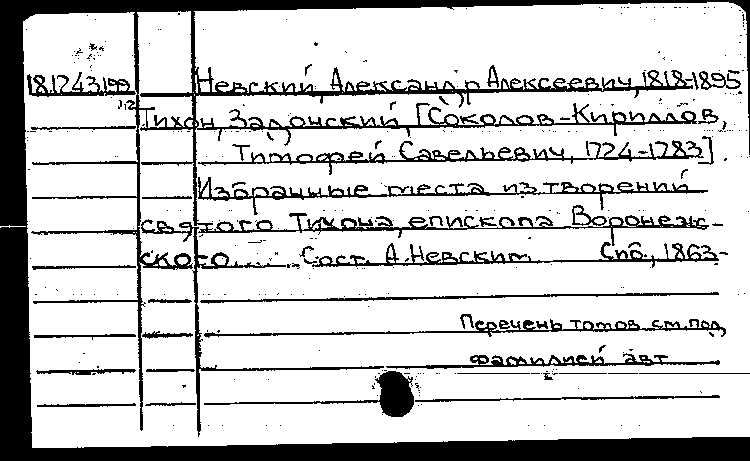 18.124.3.199 Невский, Александр Алексеевич, 1818-1895
1,2 Тихон, Задонский, [Соколов-Кириллов,
Тимофей Савельевич, 1724-1783].
Избранные места из творений
святого Тихона, епископа Воронеж-
ского.... Сост. А.Невским Спб., 1863-
Перечень томов см. под
фамилией авт